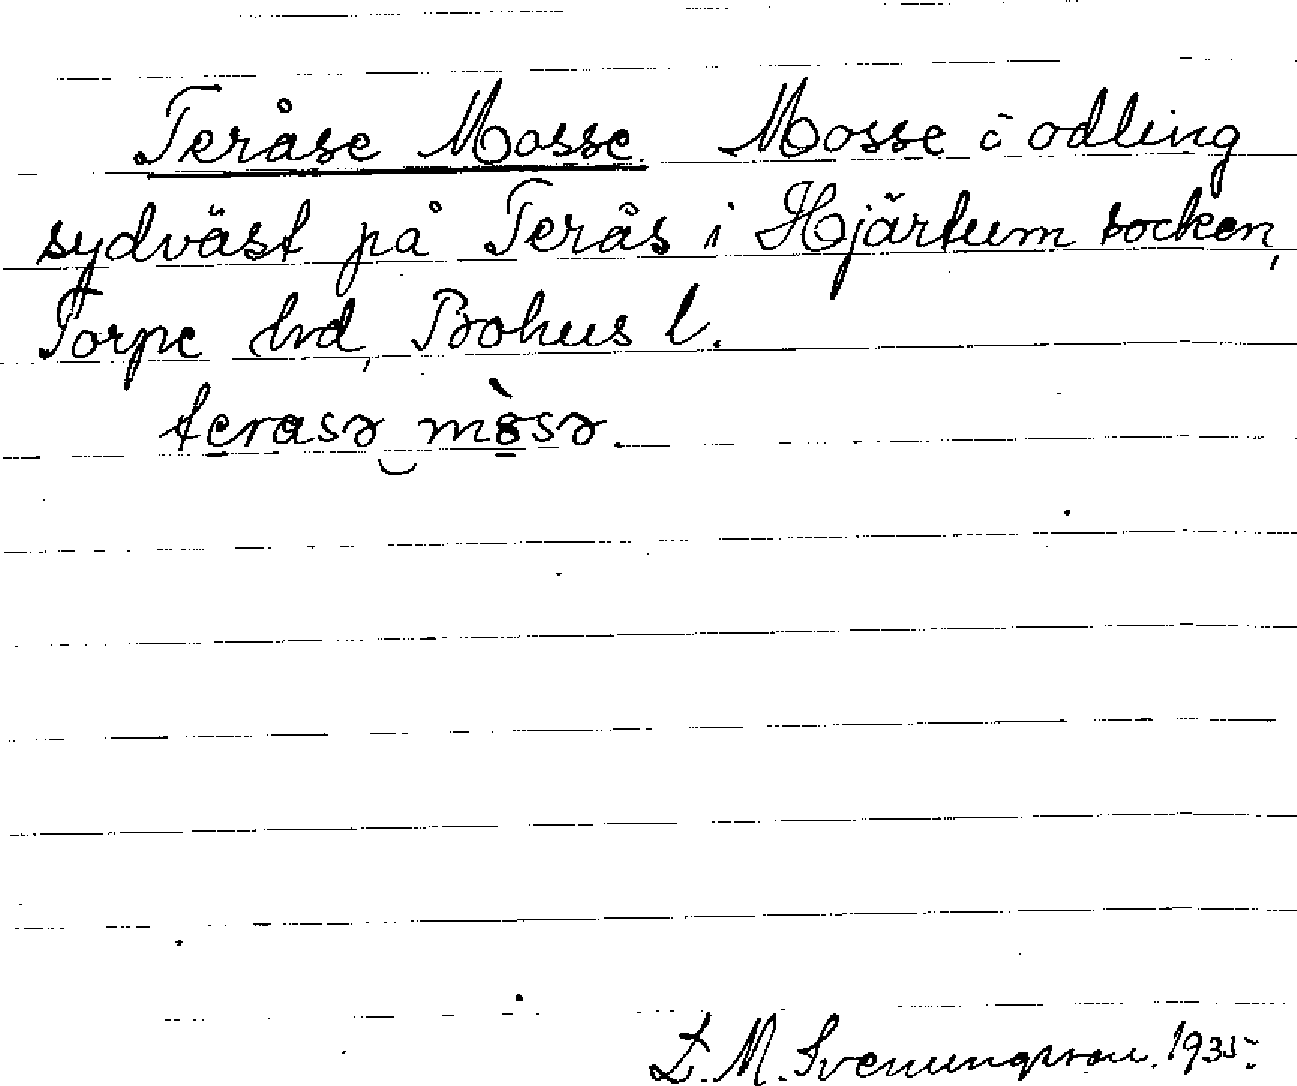 Teråse Mosse Mosse o odling
sydväst på Terås i Hjärtum socken,
Torpe hrd, Bohus l.
terasə mòsə.
L. M. Svenungsson. 1935.